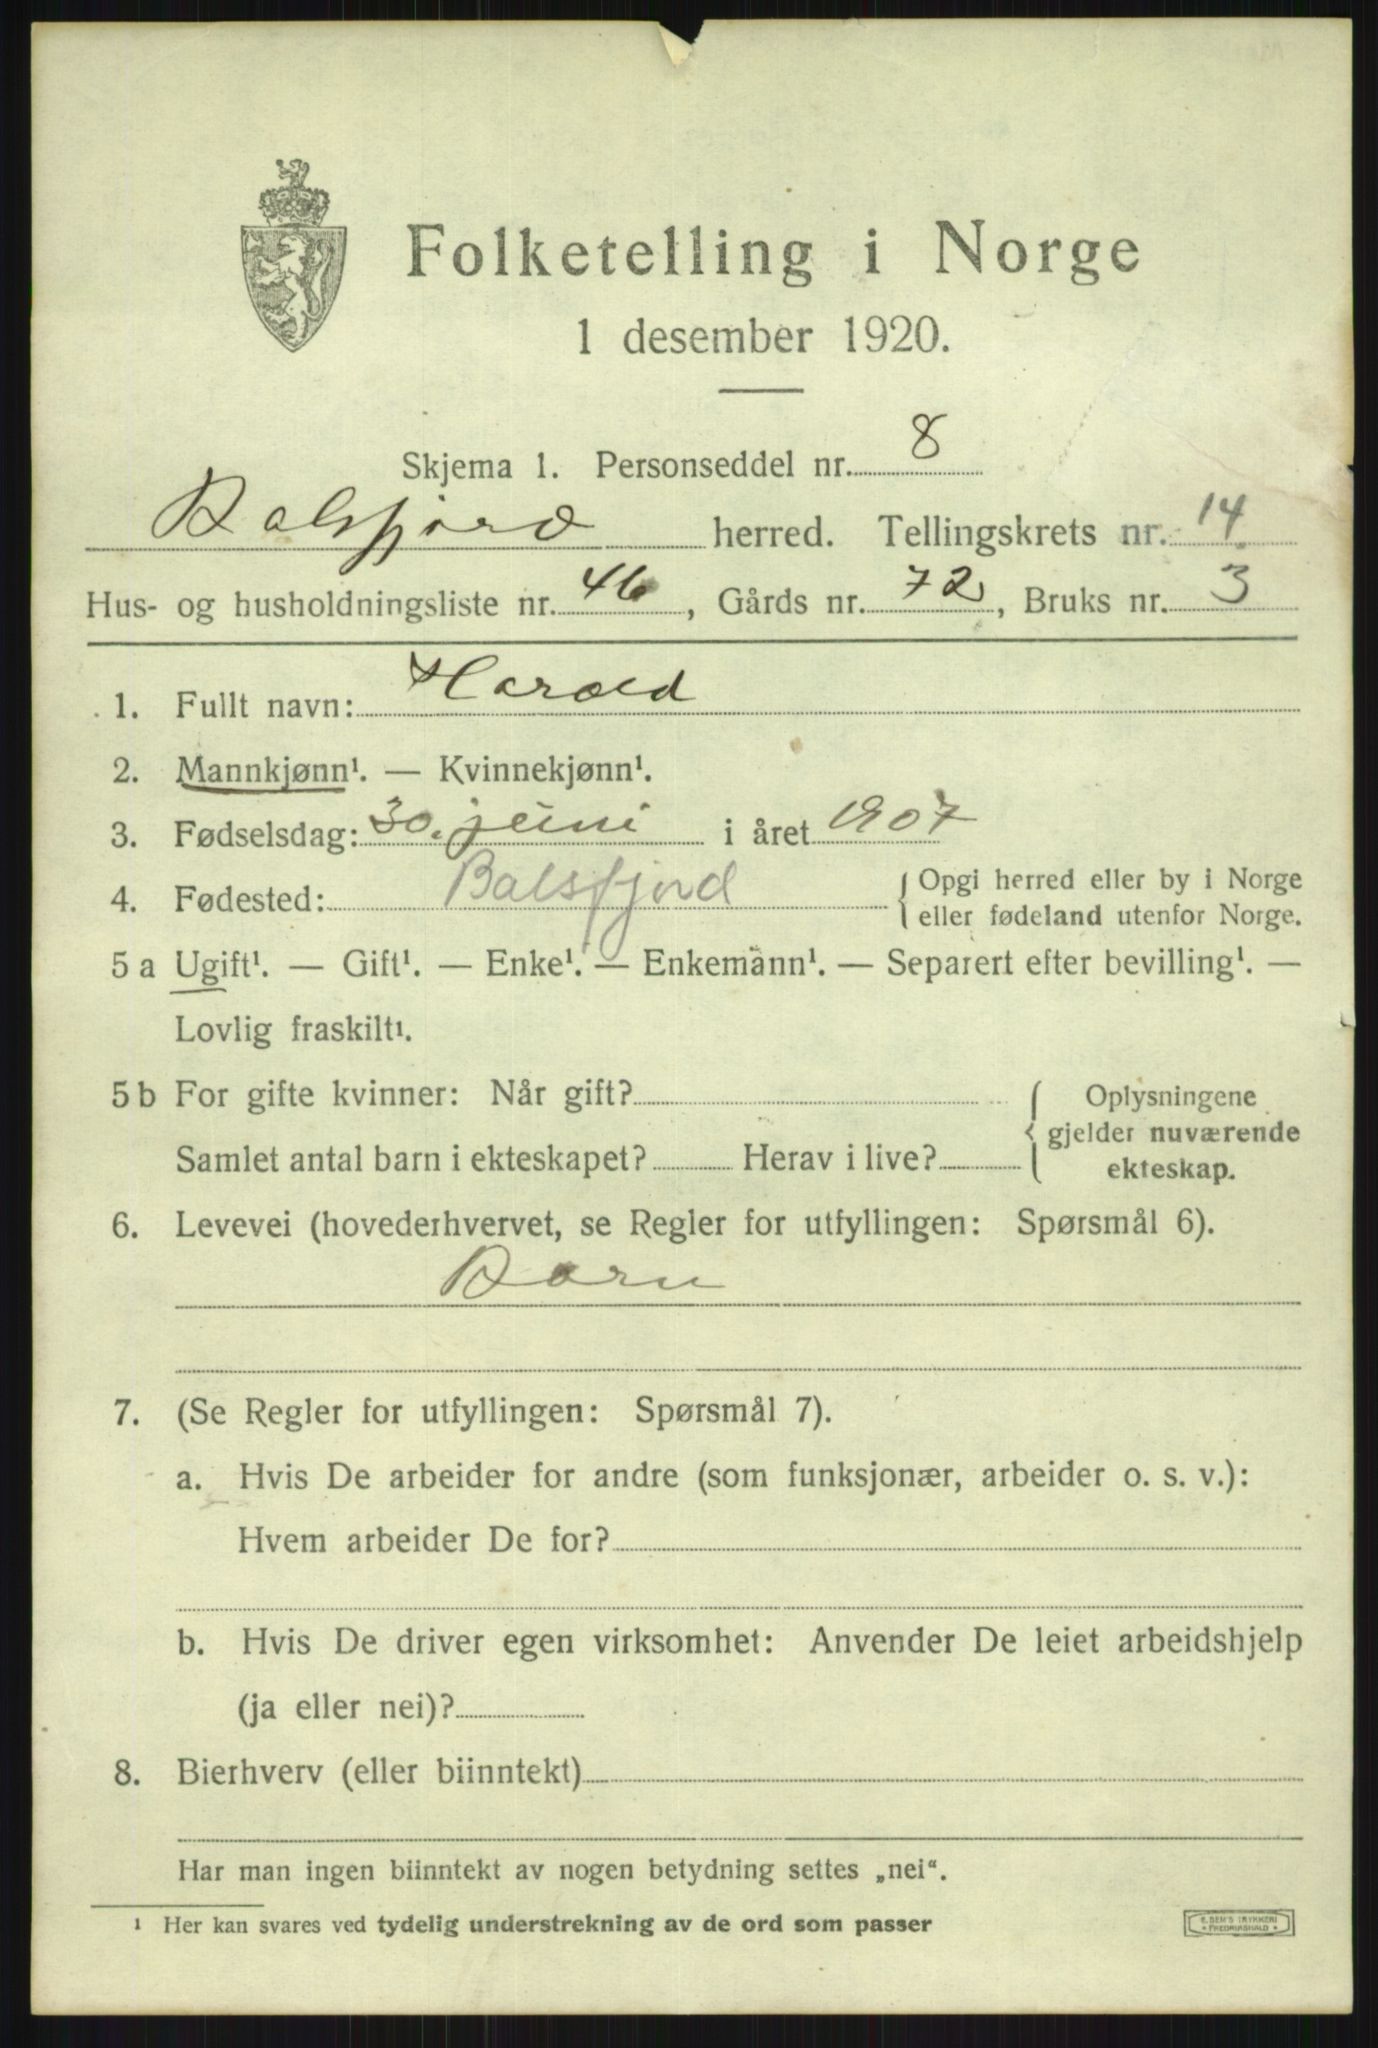 Folketelling i Norge
1 desember 1920.
Skjema 1. Personseddel nr. 8
Balsfjord herred. Tellingskrets nr. 14
Hus- og husholdningsliste nr. 46, Gårds nr. 72, Bruks nr. 3
1. Fullt navn: Harald
2. Mannkjønn¹. — Kvinnekjønn¹.
3. Fødselsdag: 30. juni i året 1907
4. Fødested: Balsfjord { Opgi herred eller by i Norge
eller fødeland utenfor Norge.
5 a Ugift¹. — Gift¹. — Enke¹. — Enkemann¹. — Separert efter bevilling¹. —
Lovlig fraskilt¹.
5 b For gifte kvinner: Når gift? { Oplysningene
gjelder nuværende
Samlet antal barn i ekteskapet? Herav i live?
ekteskap.
6. Levevei (hovederhvervet, se Regler for utfyllingen: Spørsmål 6).
Barn
7. (Se Regler for utfyllingen: Spørsmål 7).
a. Hvis De arbeider for andre (som funksjonær, arbeider o. s. v.):
Hvem arbeider De for?
b. Hvis De driver egen virksomhet: Anvender De leiet arbeidshjelp
(ja eller nei)?
8. Bierhverv (eller biinntekt)
Har man ingen biinntekt av nogen betydning settes „nei“.
¹ Her kan svares ved tydelig understrekning av de ord som passer
E. SEM'S TRYKKERI
FREDRIKSHALD